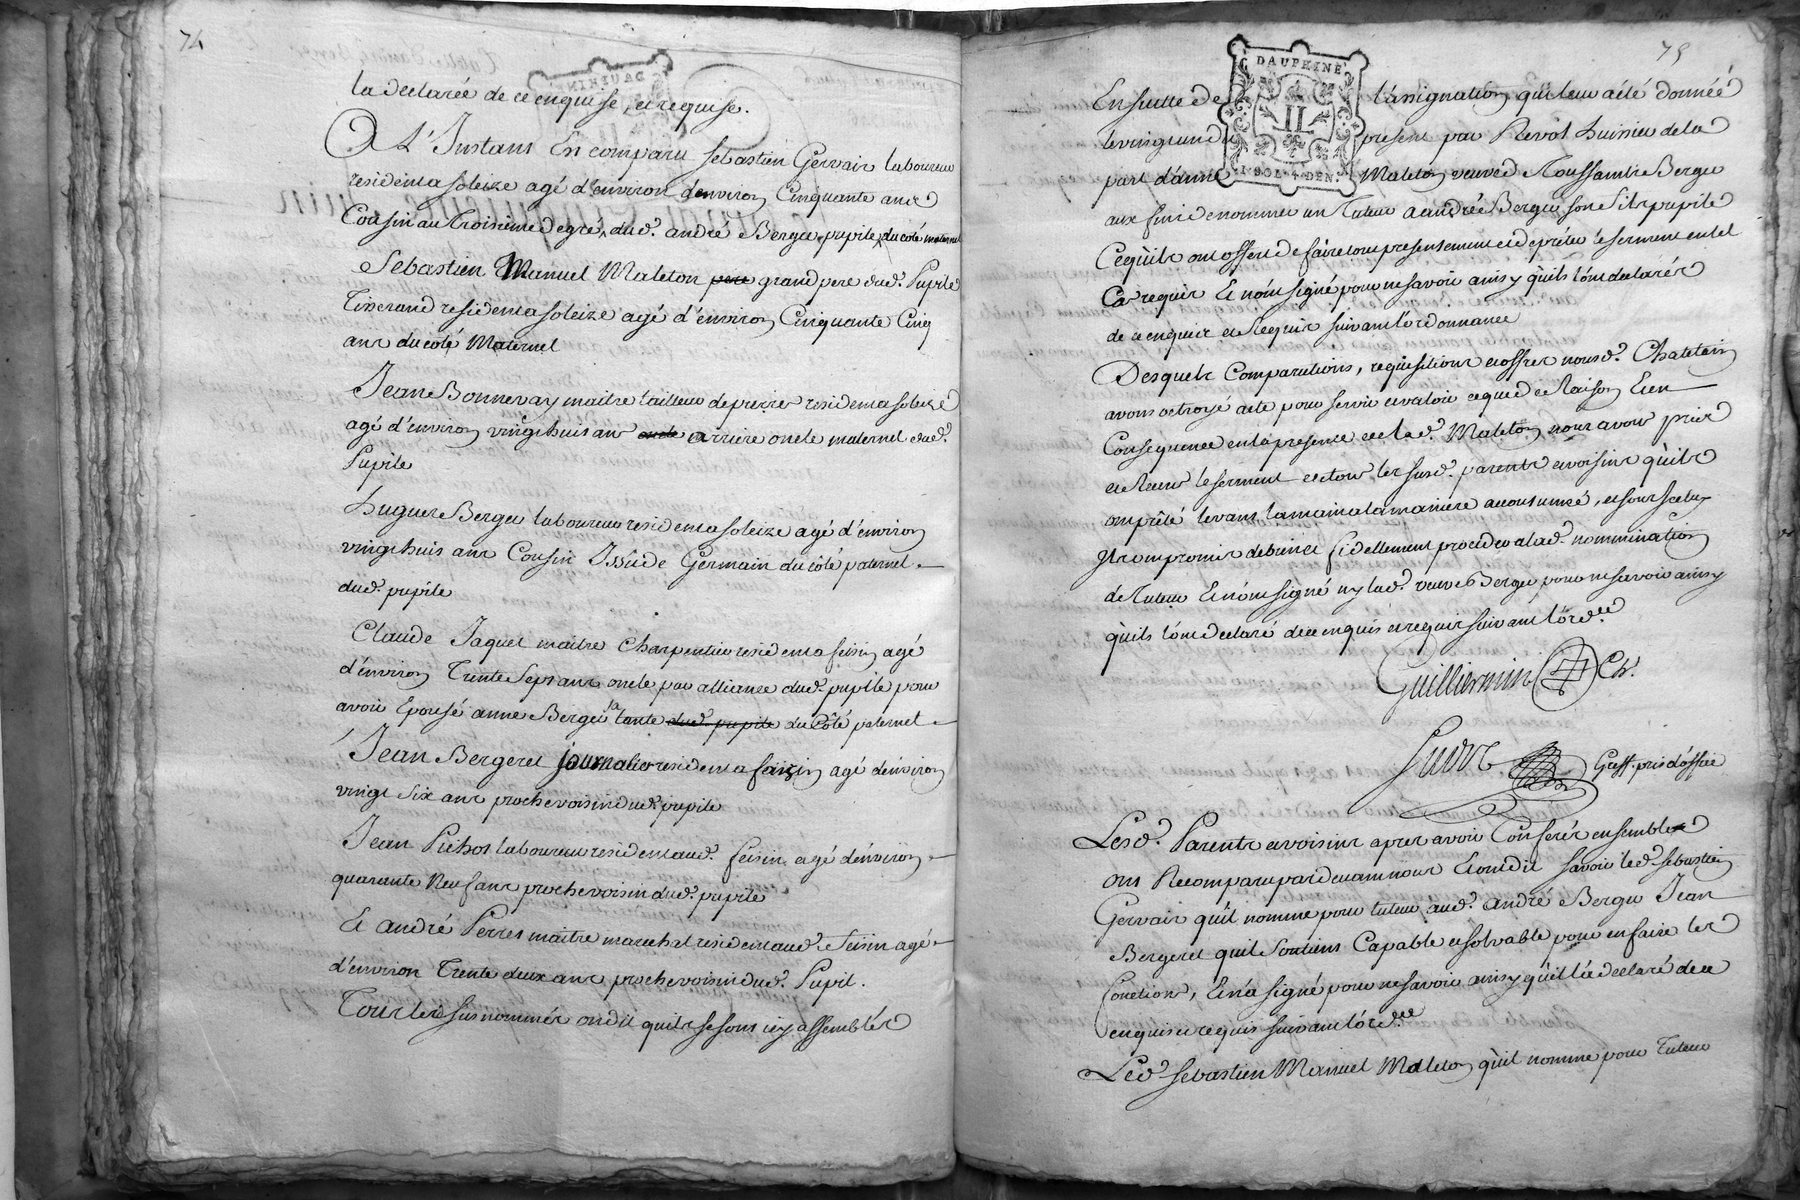 74
la declarée de ce enquise, et requise.
A L'Instans En comparu sebastien Gervais laboureur
resident a soleize agé d'environ d'environ Cinquante ans
Cousin au troisieme degré, dud. andré Berger pupile, du coté maternel
Sebastien Manuel Maleton pere grand pere dud. Pupile
Tisserand resident a soleize agé d'environ Cinquante Cinq
ans du coté Maternel
Jean Bonnevay maitre tailleur de pierres resident a soleize
agé d'environ vingt huis ans oncle arriere oncle maternel dud.
Pupile
hugues Berger laboureur resident a soleize agé d'environ
vingt huis ans Cousin Issu de Germain du côté paternel
dud. pupile
Claude Jaquet maitre Charpentier resident a feisin agé
d'environ Trente Sept ans oncle par alliance dud. pupile pour
avoir Epousé anne Berger sa tante dud. pupile du Côté paternel
Jean Bergeret journalier resident a faizin agé d'environ
vingt six ans proche voisin dud. pupile
Jean Pichot laboureur resident aud. feisin agé d'environ
quarante Neuf ans proche voisin dud. pupile
Et andré Perres maitre marechal resident aud. feisin agé
d'environ Trente deux ans proche voisin dud. Pupil.
Tous les susnommés on dit quils se sont icy assemblés
75
DAUPHINÉ
II
1. SOL. 4. DEN.
En suitte de l'assignation quil leur a été donnéé
le vingt un du present par Revol huisier de la
part d'anne Maleton veuve de Toussaint Berger
aux fins de nommer un Tuteur a andré Berger son fils pupile
Ce qu'ils ont offert de faire tous presentement et de preter le serment en tel
Cas requis Et n'ont signé pour ne savoir ainsy qu'ils l'ont declarés
de ce enquis et Requis suivant l'ordonnance
Desquels Comparutions, requisitions et offres nous d. Chatelain
avons octroyé acte pour servir et valoir ce que de Raison Et en
Consequence en la presence de lad. Maleton nous avons pris
et Recus le serment de tous les susd. parents et voisins qu'ils
ont prêté levant la main a la maniere accoutumeé, et sous icelluy
Ils ont promis de bien et fidellement proceder a lad. nommination
de Tuteur Et n'ont signé ny lad. veuve Berger pour ne savoir ainsy
qu'ils l'ont declaré de ce enquis et requis suivant l'ord.ce
Guilliermin Ch.
Greff. pris d'office
Lesd. Parents et voisins apres avoir Conferés ensemble
ont Recomparu pardevant nous Et ont dit savoir led. sebastien
Gervais qu'il nomme pour tuteur aud. andré Berger Jean
Bergeret quil soutient Capable et solvable pour en faire les
fonctions, Et n'a signé pour ne savoir ainsy qu'il l'a declaré de ce
enquis et requis suivant l'ord.ce
Led. sebastien Manuel Maleton qu'il nomme pour Tuteur